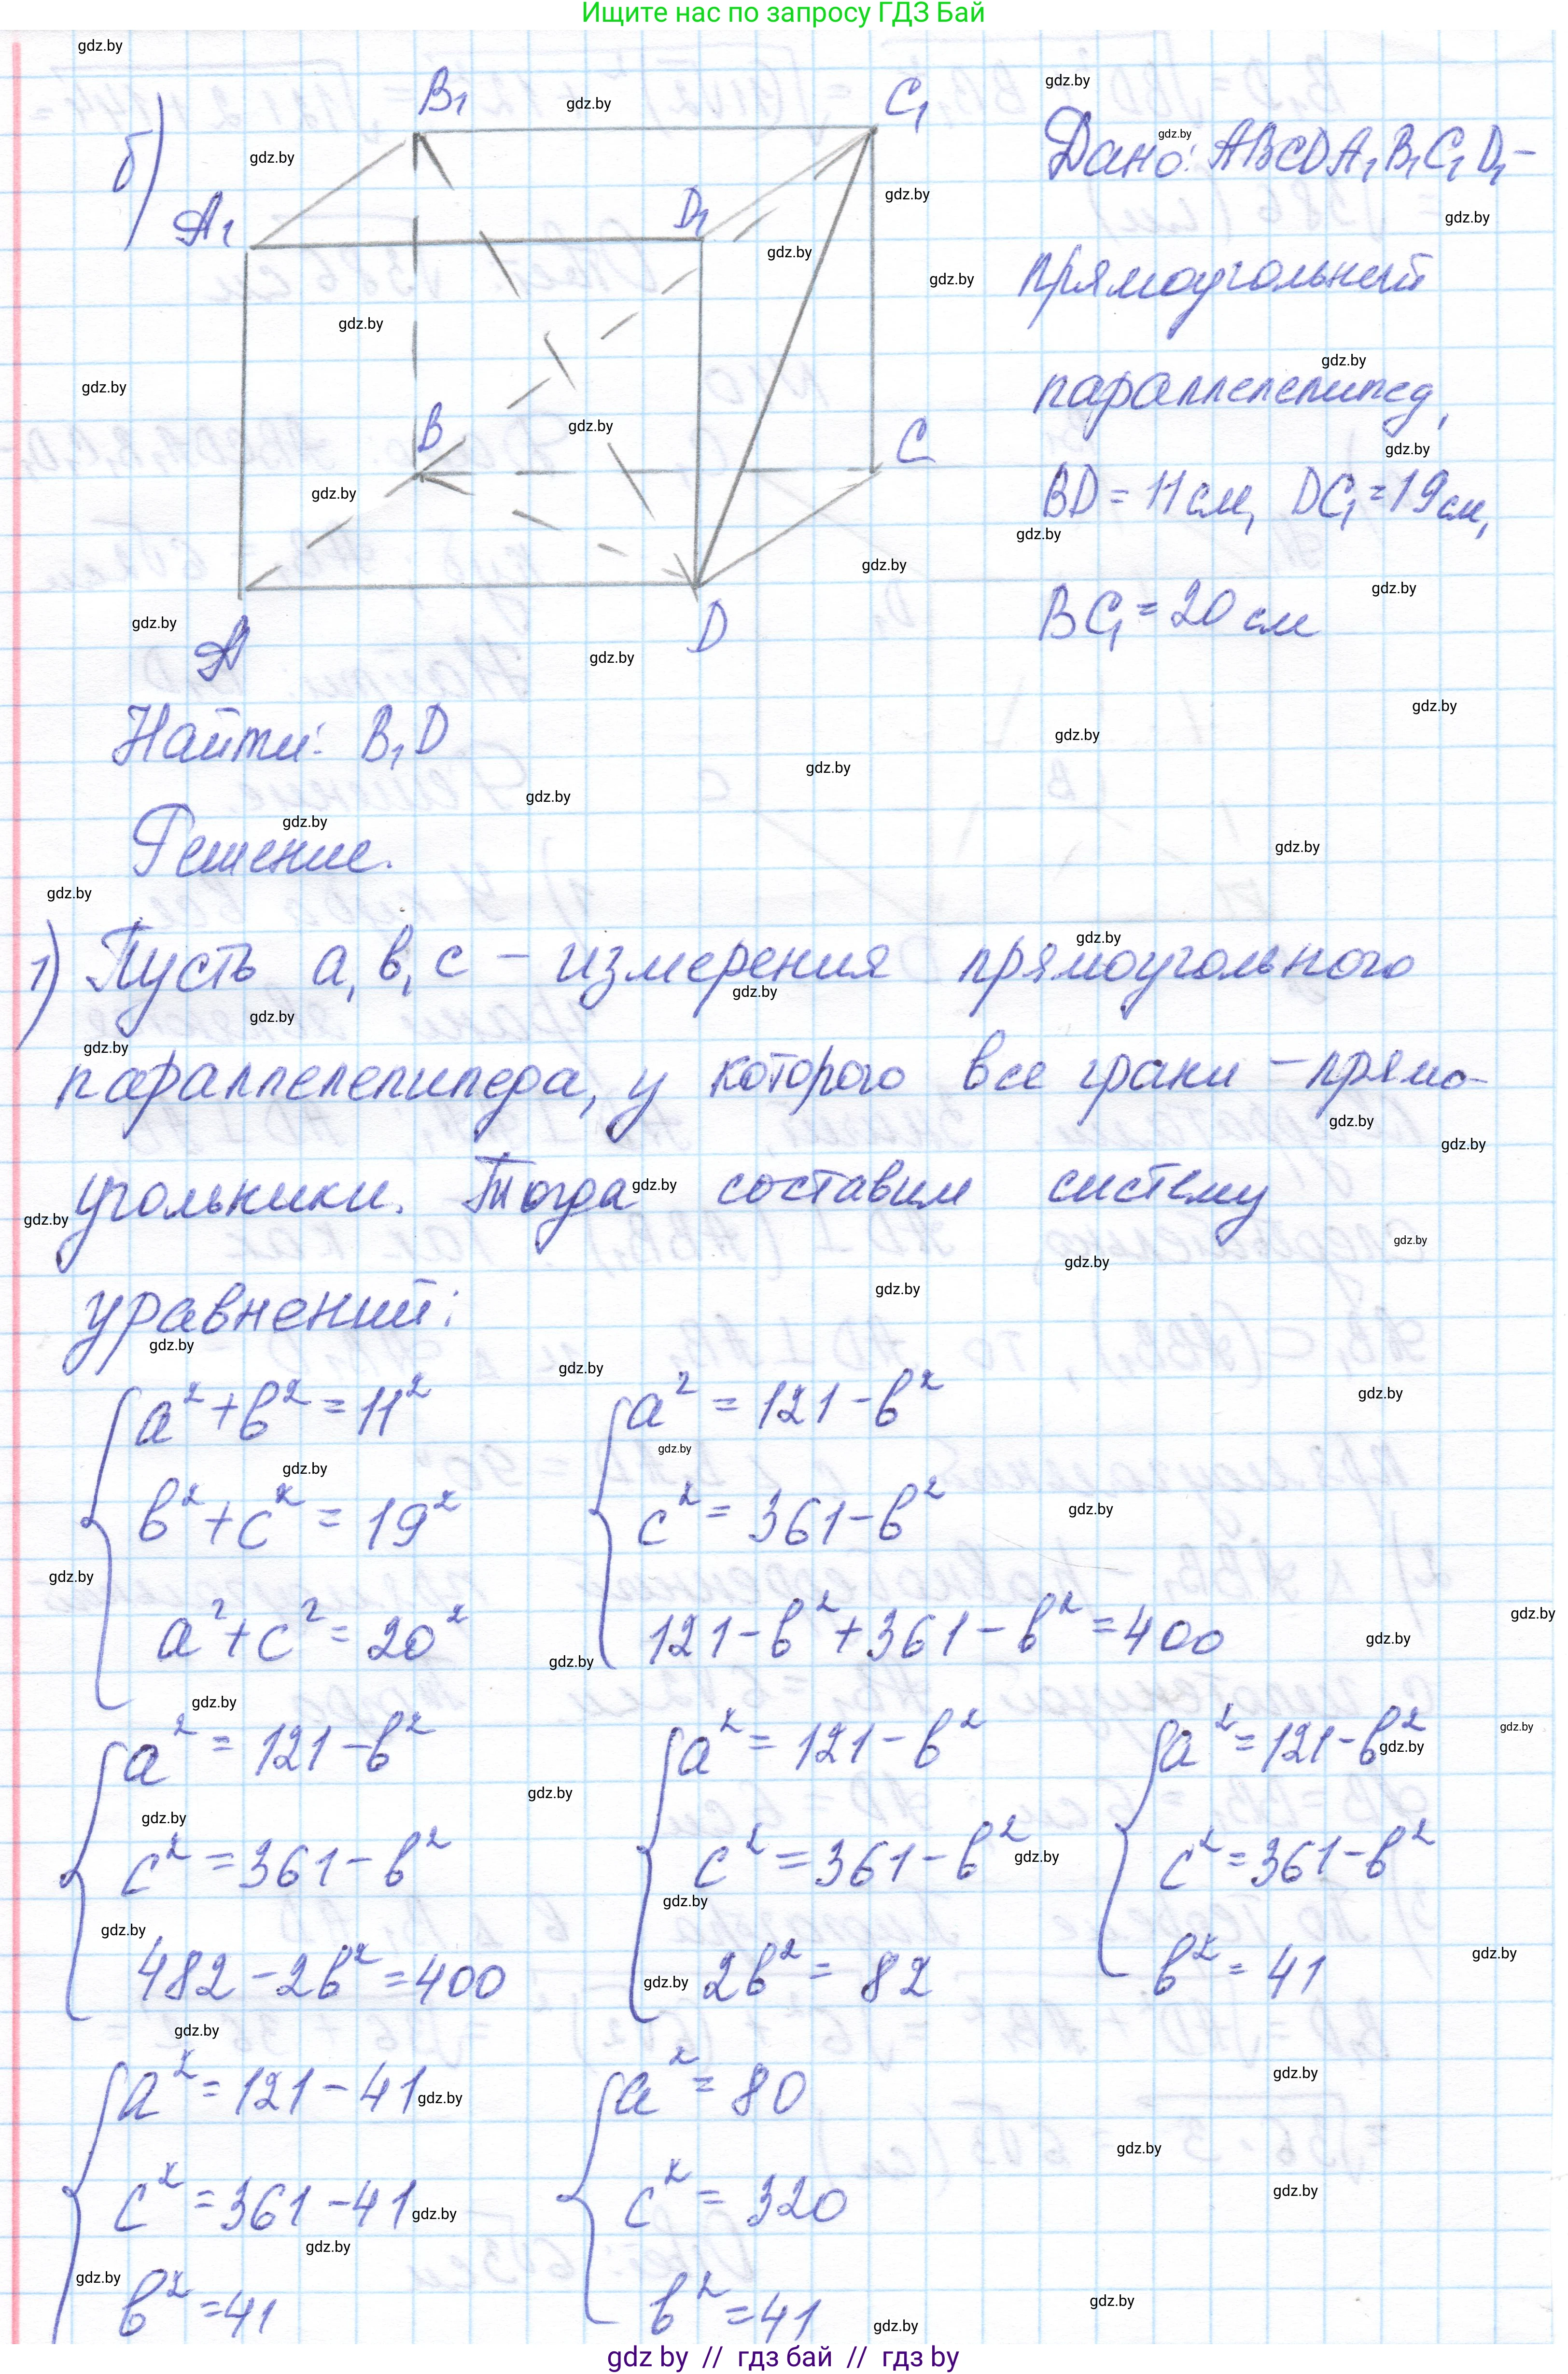 Ищите нас по запросу ГДЗ Бай
б)
B₁
C₁
A₁
D₁
B
C
A
D
Дано: ABCDA₁B₁C₁D₁ –
прямоугольный
параллелепипед,
BD = 11 см, DC₁ = 19 см,
BC₁ = 20 см
Найти: B₁D
Решение.
1) Пусть a, в, c – измерения прямоугольного
параллелепипеда, у которого все грани – прямо-
угольники. Тогда составим систему
уравнений:
{ a² + в² = 11² { a² = 121 – в²
в² + c² = 19² c² = 361 – в²
a² + c² = 20² 121 – в² + 361 – в² = 400
{ a² = 121 – в² { a² = 121 – в² { a² = 121 – в²
c² = 361 – в² c² = 361 – в² c² = 361 – в²
482 – 2в² = 400 2в² = 82 в² = 41
{ a² = 121 – 41 { a² = 80
c² = 361 – 41 c² = 320
в² = 41 в² = 41
gdz by // гдз бай // гдз by